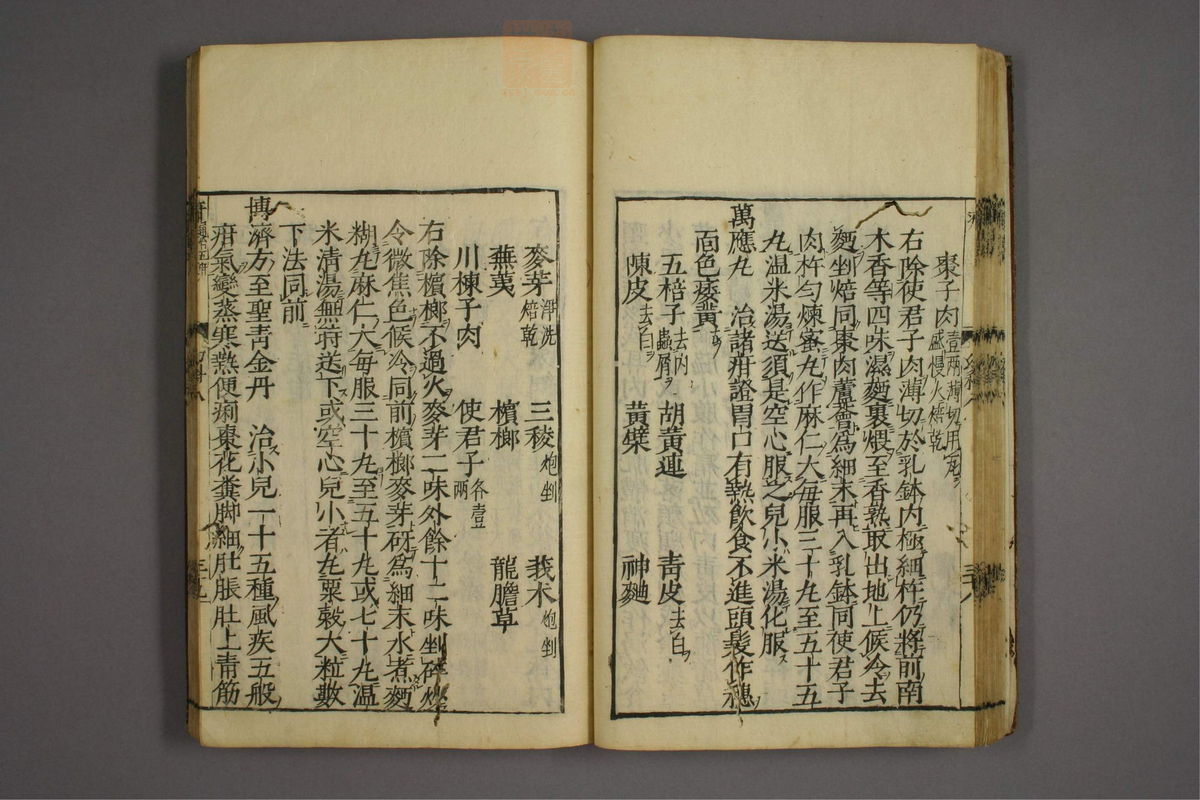 棗子肉壹兩薄切用尾
盛慢火焙乾
右除使君子肉薄切於乳鉢內極細杵仍將前南
木香等四味濕麪裹煨至香熟取出地上候冷去
麪剉焙同棗肉蘆薈爲細末再入乳鉢同使君子
肉杵勻煉蜜丸作麻仁大每服三十丸至五十五
丸溫米湯送須是空心服之兒小米湯化服
萬應丸 治諸疳證胃口有熱飲食不進頭髮作穗
面色痿黃
五棓子去內蟲屑 胡黃連 青皮去白
陳皮去白 黃檗 神麯
麥芽淨洗焙乾 三稜炮剉 莪朮炮剉
蕪荑 檳榔 龍膽草
川楝子肉 使君子各壹兩
右除檳榔不過火麥芽二味外餘十二味剉碎炒
令微焦色候冷同前檳榔麥芽研爲細末水煮麪
糊丸麻仁大每服三十丸至五十丸或七十丸溫
米清湯無時送下或空心兒小者丸粟穀大粒數
下法同前
博濟方至聖青金丹 治小兒一十五種風疾五般
疳氣變蒸寒熱便痢棗花糞脚細肚脹肚上青筋